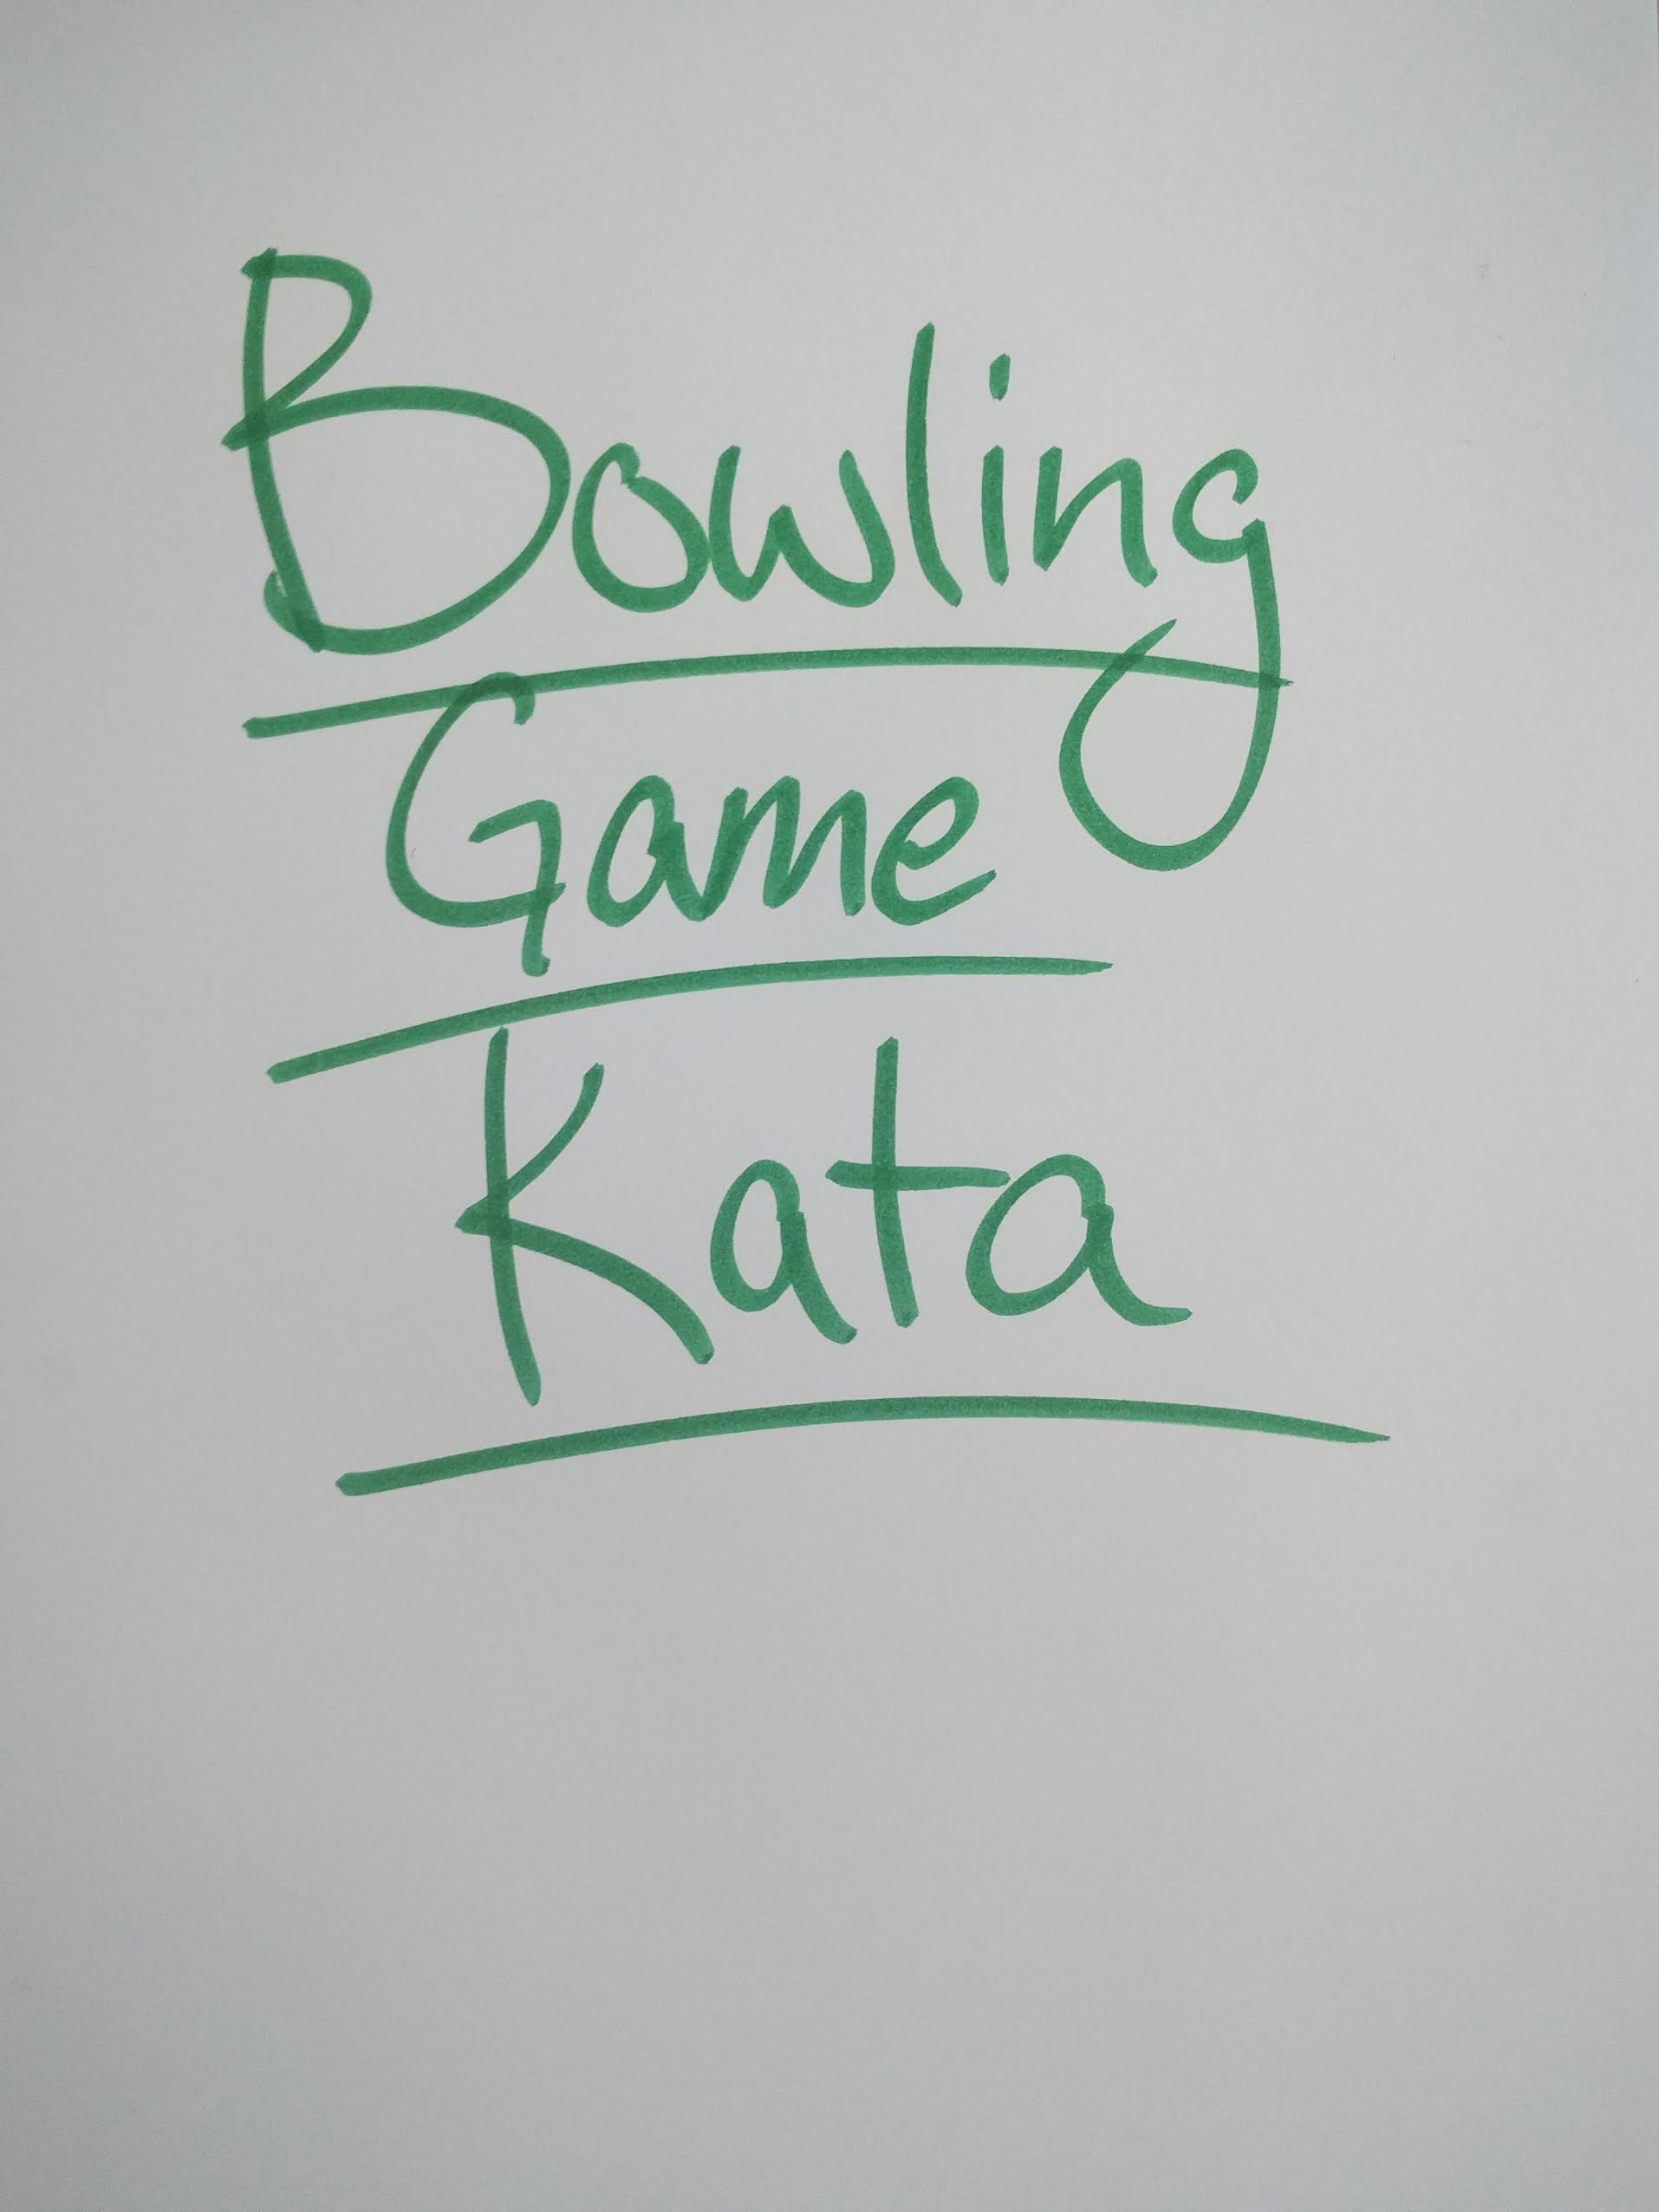 Bowling
Game
Kata